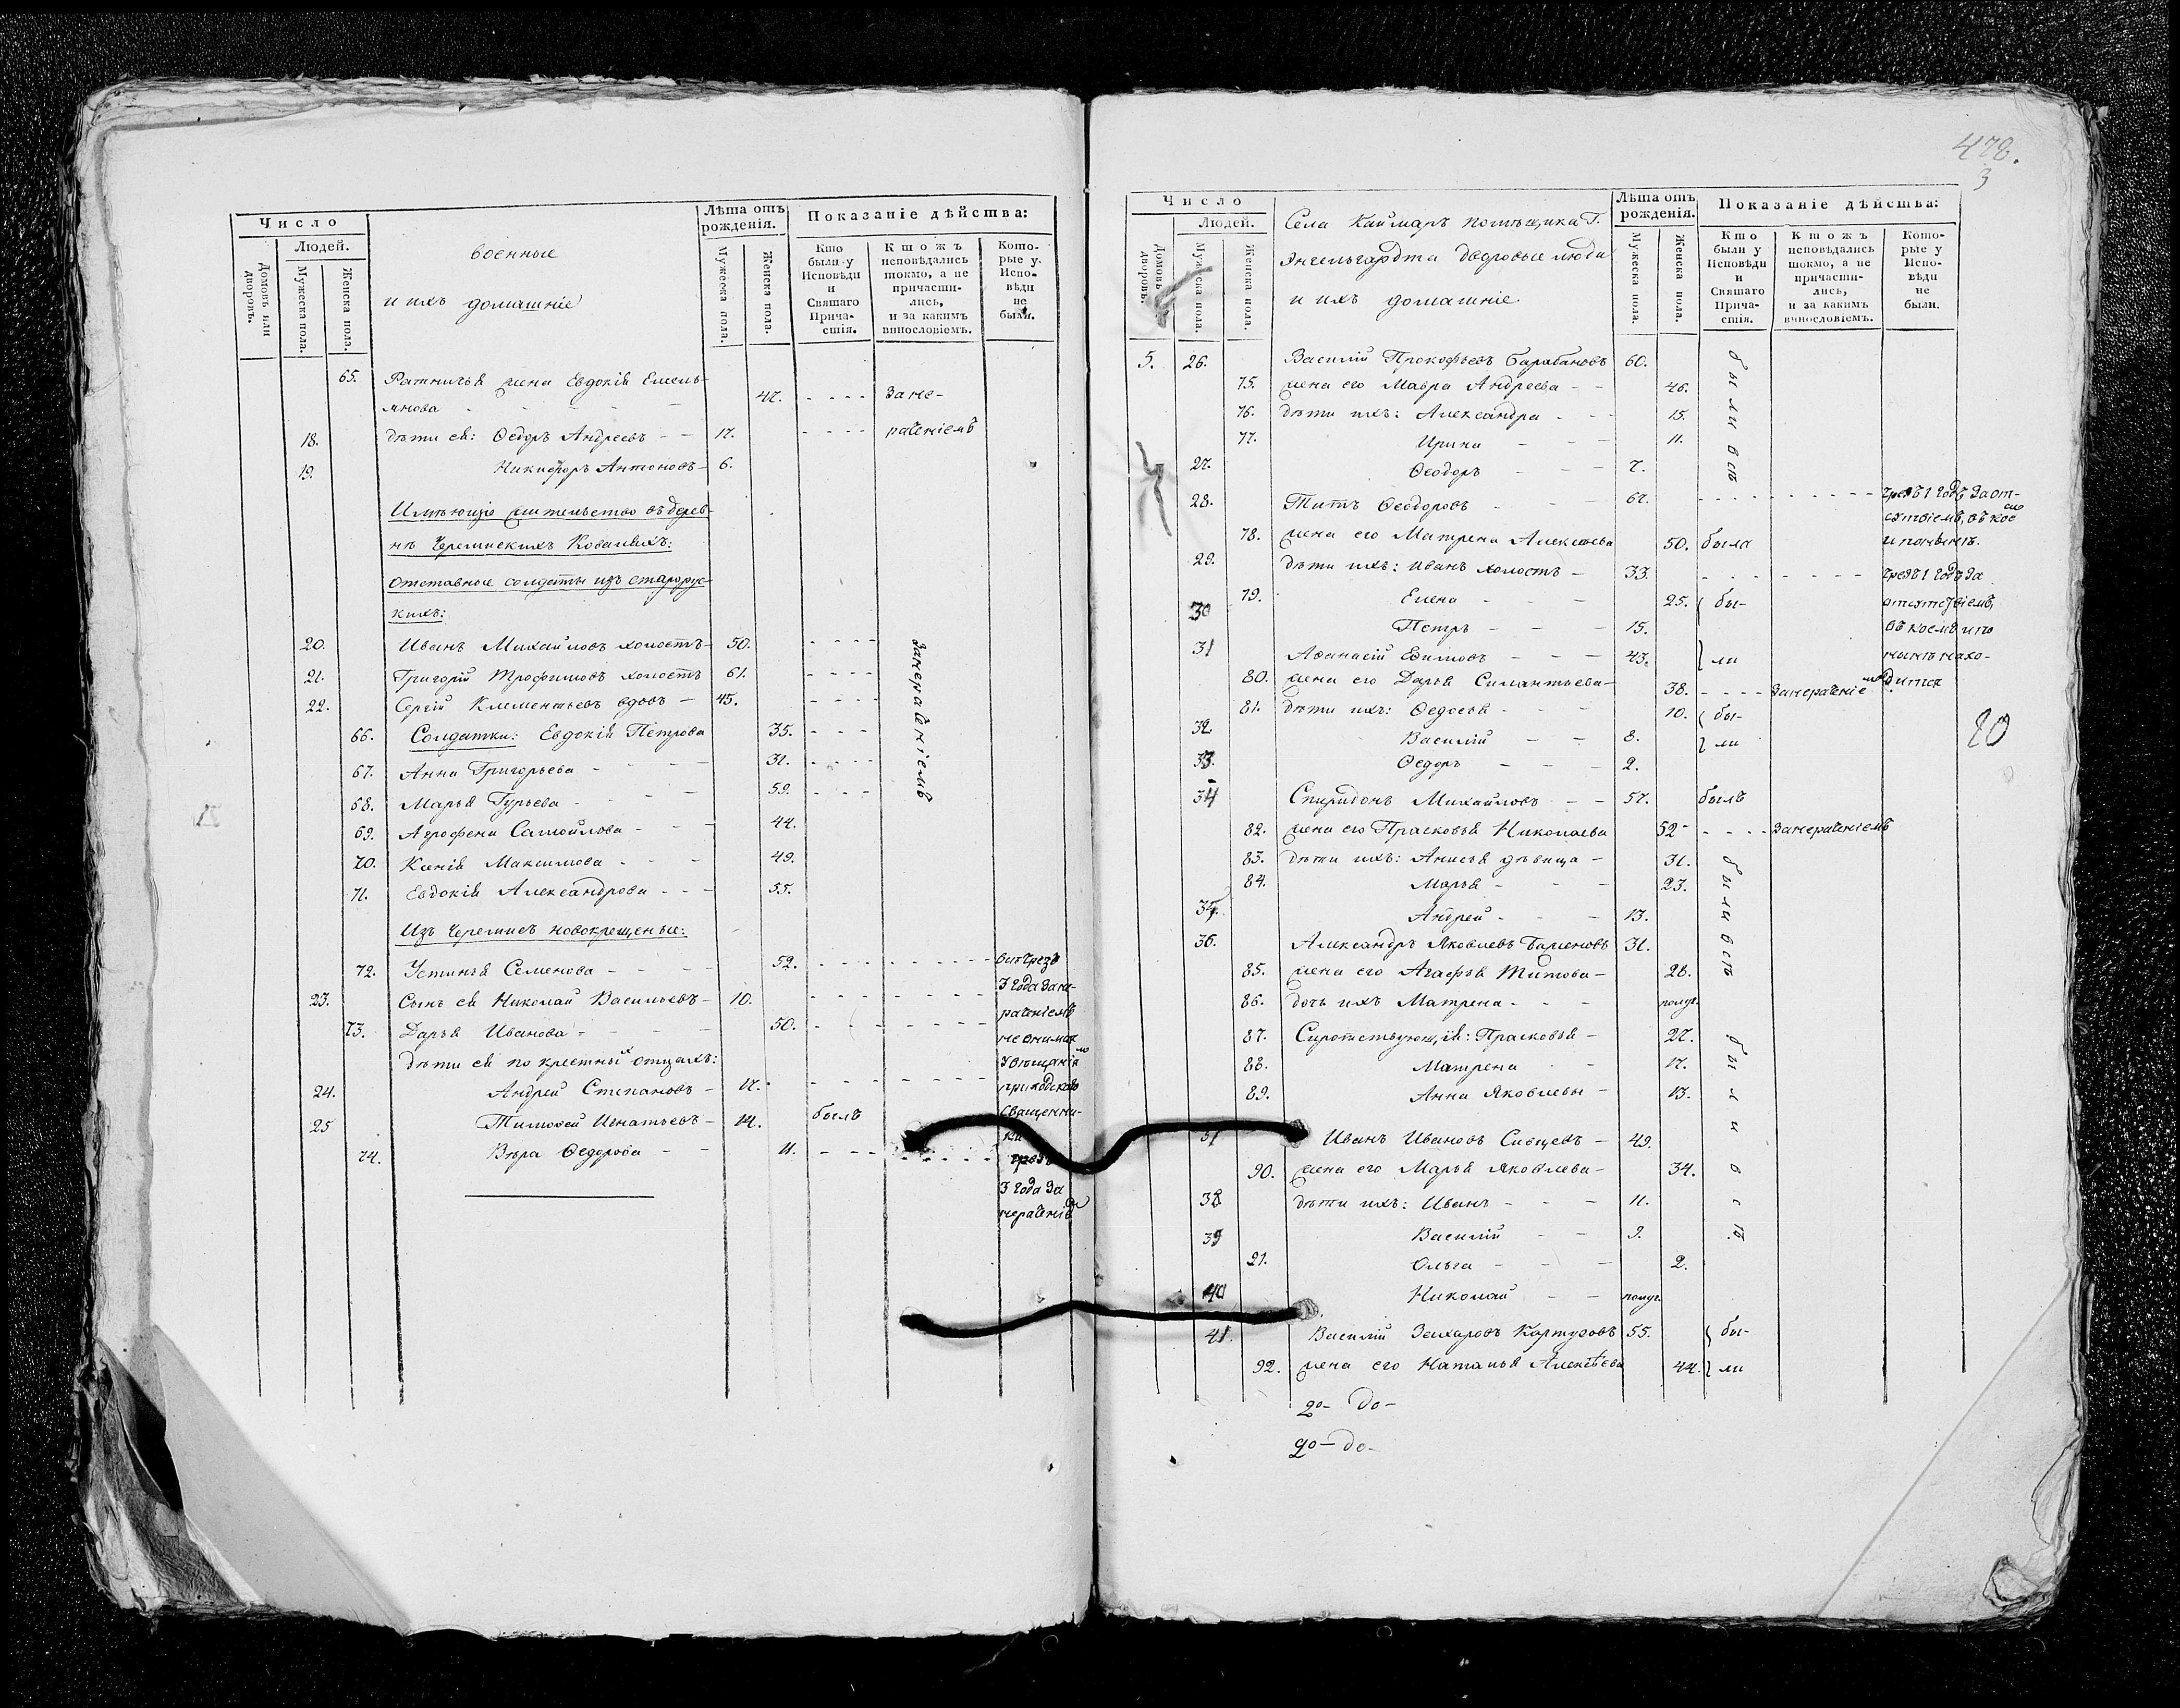 Число
Людей.
Домовъ или дворовъ.
Мужеска пола.
Женска пола.
военные
и ихъ домашніе
Лѣта отъ рожденія.
Мужеска пола.
Женска пола.
Показаніе дѣйства:
Кто были у Исповѣди и Святаго Причастія.
Ктожъ исповѣдались токмо, а не причастились, и за какимъ винословіемъ.
Которые у Исповѣди не были.
65. Ратничья жена Евдокія Емель-
янова - - - 47. - - - - за не-
18. дѣти ея: Ѳедоръ Андреевъ - - 17. - - - - раченіемъ
19. Никифоръ Антоновъ - 6.
Имѣющіе жительство въ дерев-
нѣ Черемискихъ Ковалихъ:
отставные солдаты изъ старорус-
кихъ:
20. Иванъ Михайловъ холостъ - 50. - - - -
занераченіемъ
21. Григорій Трофимовъ холостъ 61. - - - -
22. Сергій Клементьевъ вдовъ - 45. - - - -
66. Солдатки: Евдокія Петрова 35. - - -
67. Анна Григорьева - - - 31. - - - -
68. Марья Гурьева - - - 59. - - -
69. Агрофена Самойлова - - - 44.
70. Ксенія Максимова - - - 49.
71. Евдокія Александрова - - - 55.
Изъ Черемисъ новокрещеные:
72. Устинья Семенова - - - - 52. - - - - - - -
3 года за не-
23. Сынъ ея Николай Васильевъ - 10. - - - - - -
раченіемъ
73. Дарья Иванова - - - - 50. - - - - - -
не внимая
дѣти ея по крестнымъ отцахъ:
увѣщанію
24. Андрей Степановъ - 17. - - - - - -
приходскаго
25 Тимоѳей Игнатьевъ - 14. былъ
священни-
ка
74. Вѣра Ѳедорова - - 11. - - - - - - -
чрезъ
3 года за
нераченіе
478.
3
Число
Людей.
Домовъ дворовъ.
Мужеска пола.
Женска пола.
Села Каймаръ помѣщика Г.
Энгельгардта дворовые люди
и ихъ домашніе.
Лѣта отъ рожденія.
Мужеска пола.
Женска пола.
Показаніе дѣйства:
Кто были у Исповѣди и Святаго Причастія.
Ктожъ исповѣдались токмо, а не причастились, и за какимъ винословіемъ.
Которые у Исповѣди не были.
5. 26. Василій Прокофьевъ Барабановъ 60.
были всѣ
75. жена его Мавра Андреева - - 46.
76. дѣти ихъ: Александра - - - 15.
77. Ирина - - - 11.
27. Ѳеодоръ - - - 7.
28. Титъ Ѳеодоровъ - - - 67. - - - - - - - - чрезъ 1 годъ за от-
сутствіемъ, въ коемъ
78. жена его Матрена Алексѣева 50. была и понынѣ.
29. дѣти ихъ: Иванъ холостъ - 33. - - - - - - чрезъ 1 годъ за
79. Елена - - - 25. бы-
отсутствіемъ,
30 Петръ - - - 15.
въ коемъ и по
31 Аѳанасій Ефимовъ - - - 43. ли
нынѣ нахо-
дится
80. жена его Дарья Силантьева - 38. - - - - занераченіемъ
81. дѣти ихъ: Ѳедосья - - - 10. бы-
32. Василій - - 8. ли
20
33. Ѳедоръ - - - 2.
34 Спиридонъ Михайловъ - - 57. былъ
82. жена его Прасковья Николаева 52 - - - - занераченіемъ
83. дѣти ихъ: Анисья дѣвица - 31.
были всѣ
84. Марья - - - 23.
35. Андрей - - - 13.
36. Александръ Яковлевъ Баженовъ 31.
85. жена его Агафья Титова - 28.
86. дочь ихъ Матрена - - - полуг.
87. Сиротствующія: Прасковья - 27.
были всѣ.
88. Матрена - - 17.
89. Анна Яковлевы - 13.
37 Иванъ Ивановъ Сивцевъ - 49.
90. жена его Марья Яковлева - 34.
38 дѣти ихъ: Иванъ - - - 11.
39 Василій - - 9.
91. Ольга - - - 2.
40 Николай - - полуг.
41. Василій Захаровъ Картузовъ 55. бы-
92. жена его Наталья Алексѣева 44. ли